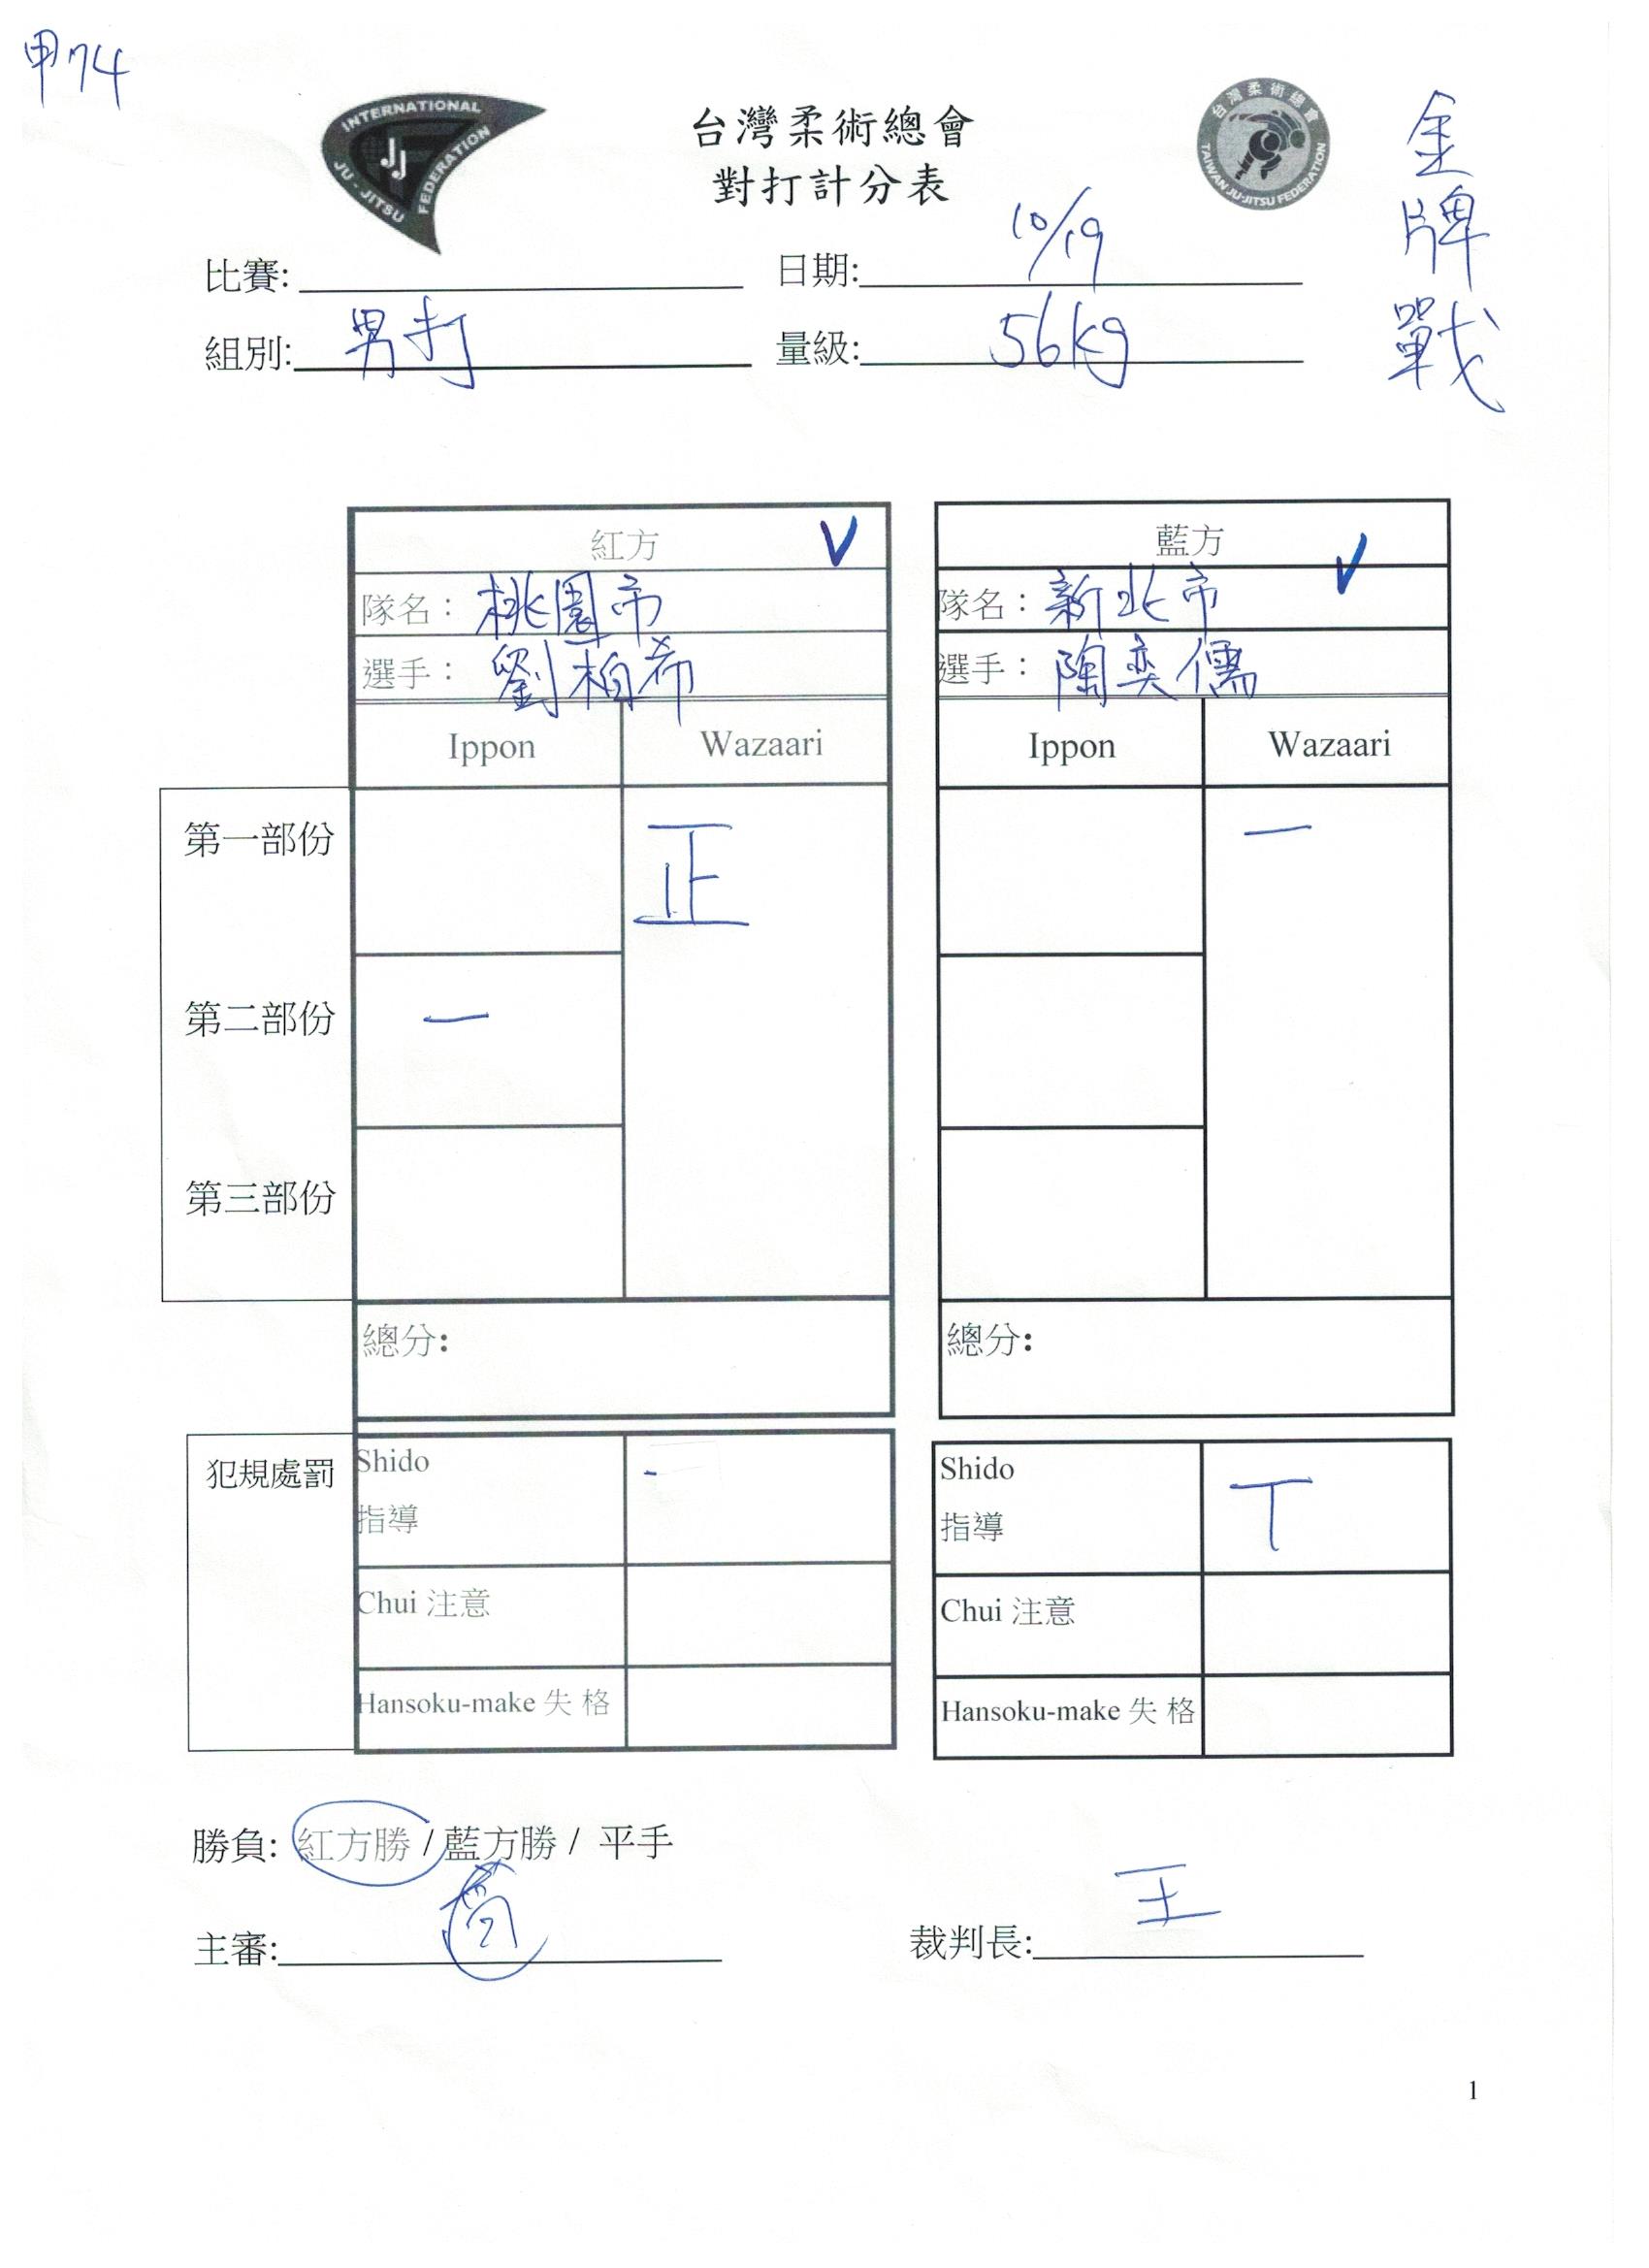 甲74
INTERNATIONAL JU-JITSU FEDERATION
JJ
台灣柔術總會
對打計分表
台灣柔術總會
TAIWAN JU-JITSU FEDERATION
金牌戰
比賽: 日期: 10/19
組別: 男打 量級: 56kg
紅方 V 藍方 V
隊名: 桃園市 隊名: 新北市
選手: 劉柏希 選手: 陶奕儒
Ippon Wazaari Ippon Wazaari
第一部份 正 一
第二部份 一
第三部份
總分: 總分:
犯規處罰 Shido - Shido T
指導 指導
Chui 注意 Chui 注意
Hansoku-make 失 格 Hansoku-make 失 格
勝負: 紅方勝 / 藍方勝 / 平手
主審: 裁判長: 王
1